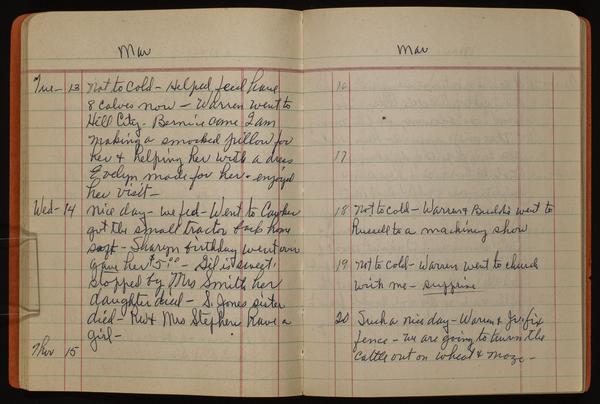 Mar
Tue- 13 Not to cold - Helped feed have
8 calves now - Warren went to
Hill City. Bernice came I am
making a smocked pillow for
her & helping her with a dress
Evelyn made for her. enjoyed
her visit -
Wed- 14 Nice day - we fed - Went to Cawker
got the small tractor back home
Sharyn birthday went over
gave her $5.00 - Gil is sweet.
Stopped by Mrs Smith her
daughter died - S. Jones sister
died - Rev & Mrs Stephens have a
girl -
Thur 15
Mar
16
17
18 Not to cold - Warren & Buddie went to
Russell to a machinery show
19 Not to cold - Warren went to church
with me - surprise
20 Such a nice day - Warren & Jr. fix
fence - we are going to turn the
cattle out on wheat & maze -